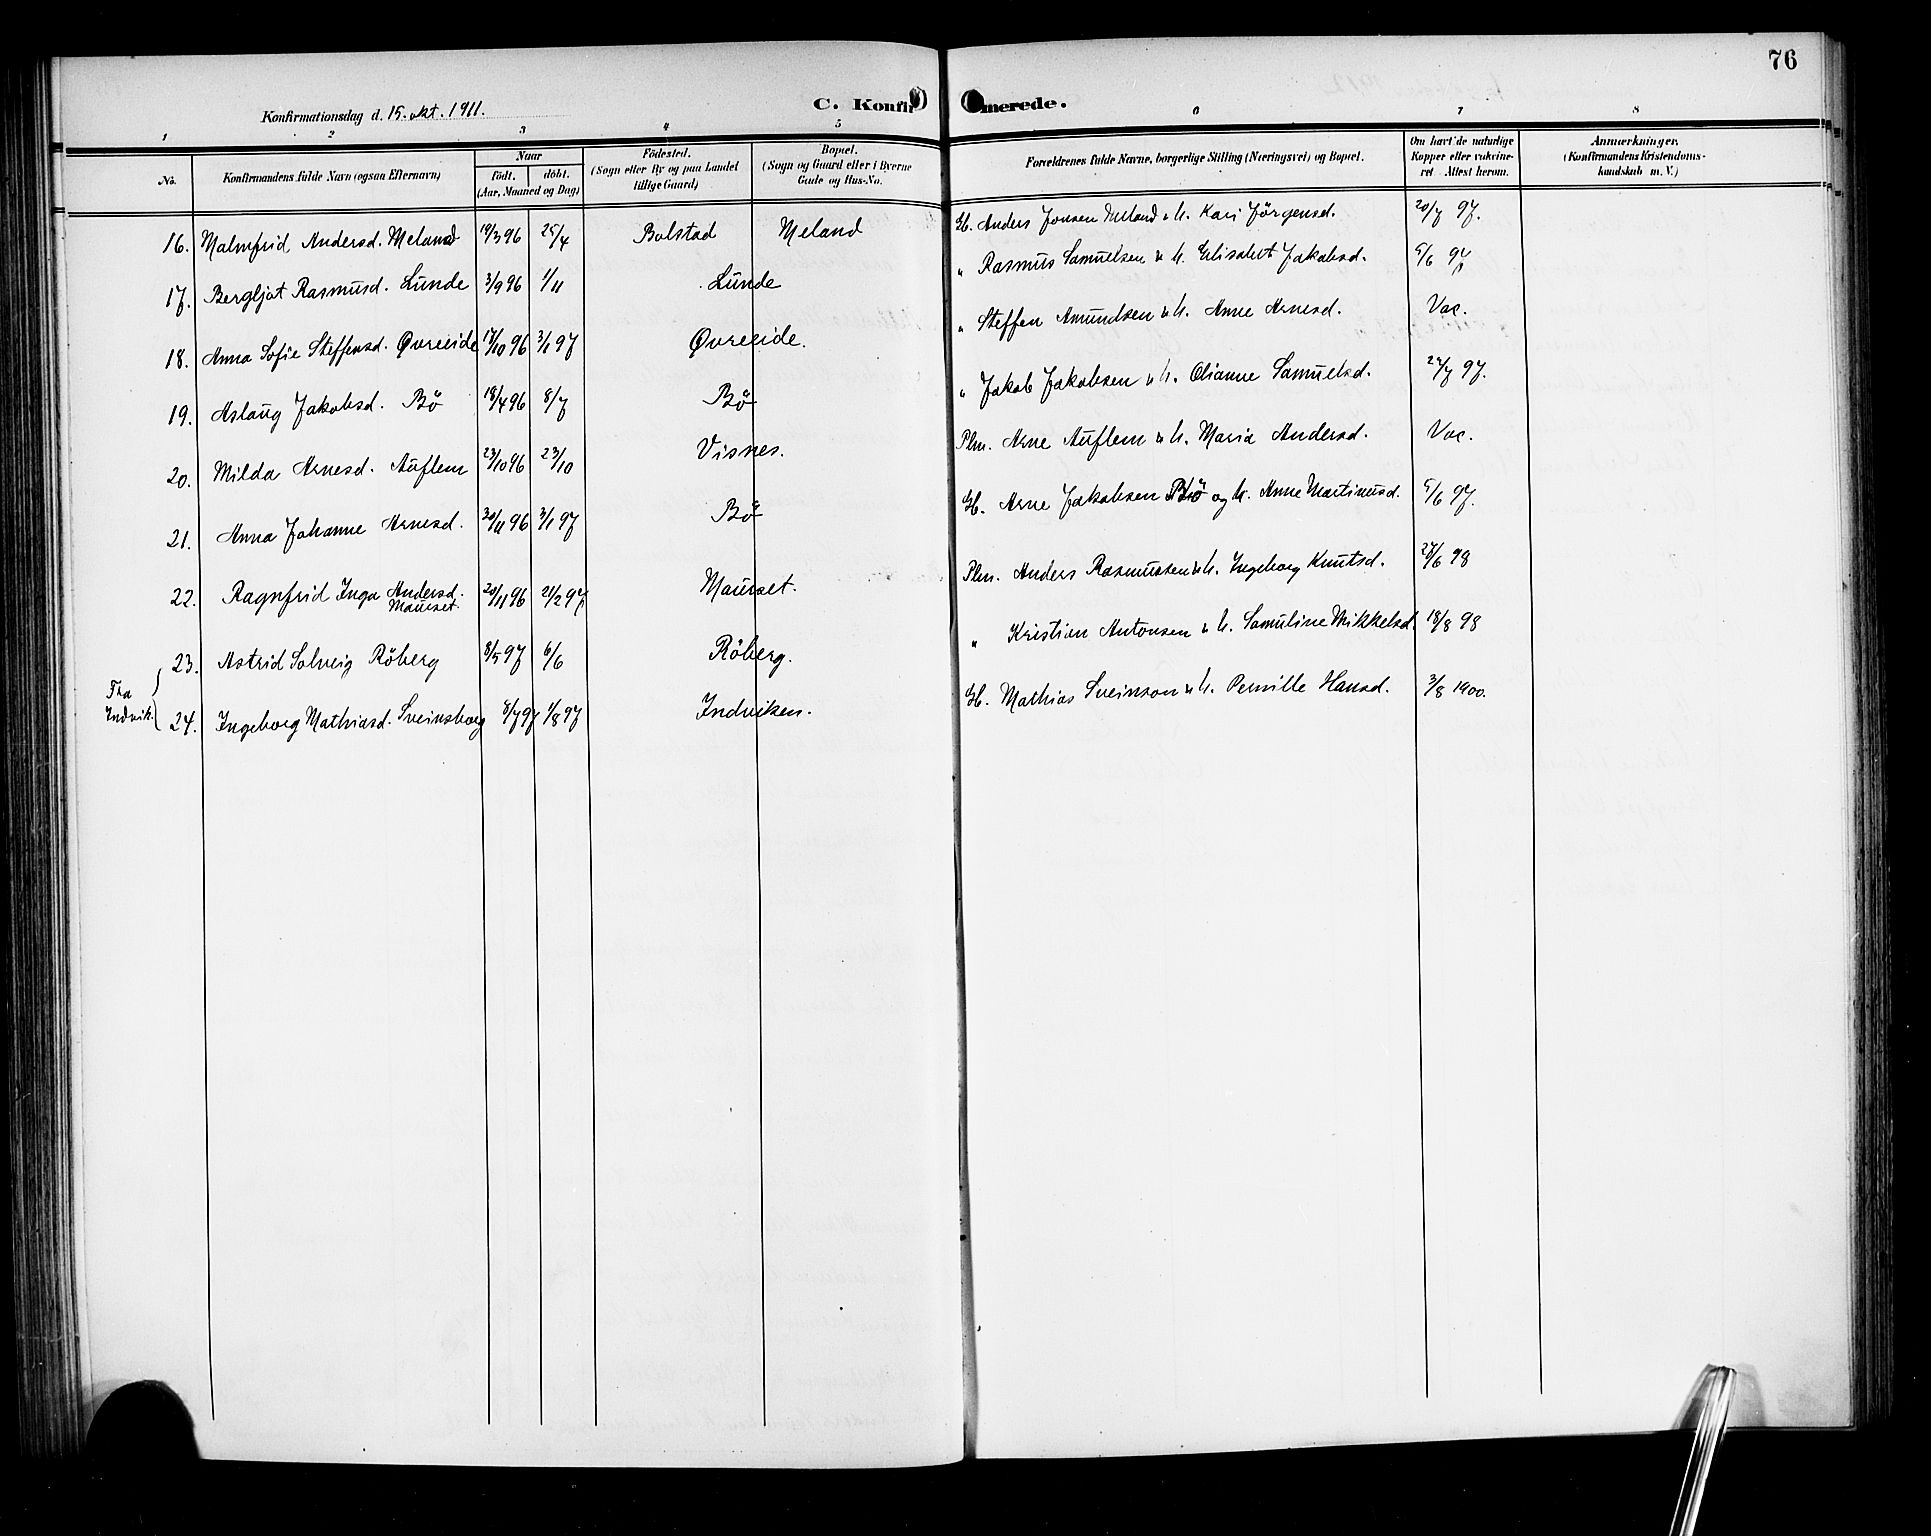 76
Konfirmationsdag d. 15. okt. 1911.
C. Konfirmerede.
1 2 3 4 5 6 7 8
No.
Konfirmandens fulde Navn (ogsaa Efternavn)
Naar
födt. döbt.
(Aar, Maaned og Dag)
Födested.
(Sogn eller By og paa Landet
tillige Gaard)
Bopæl.
(Sogn og Gaard eller i Byerne
Gade og Hus-No.
Forældrenes fulde Navne, borgerlige Stilling (Næringsvei) og Bopæl.
Om havt de naturlige
Kopper eller vakcine-
ret Attest herom.
Anmærkninger.
(Konfirmandens Kristendoms-
kundskab m. V.)
16. Malmfrid Andersd. Meland 19/3 96 25/4 Bolstad Meland Gb. Anders Jonsen Meland & h. Kari Jørgensd. 20/7 97.
17. Bergljot Rasmusd. Lunde 3/9 96 1/11 Lunde " Rasmus Samuelsen & h. Elisabet Jakobsd. 5/6 97
18. Anna Sofie Steffensd. Øvreeide 17/10 96 3/1 97 Øvreeide. " Steffen Amundsen & h. Anne Arnesd. Vac.
19. Aslaug Jakobsd. Bö 18/4 96 8/7 Bö " Jakob Jakobsen & h. Olianne Samuelsd. 27/7 97.
20. Milda Arnesd. Auflem 23/10 96 23/10 Visnes. Plm. Arne Auflem & h. Maria Andersd. Vac.
21. Anna Johanne Arnesd. 30/11 96 3/1 97 Bö Gb. Arne Jakobsen Bö og h. Anne Martinusd. 5/6 97.
22. Ragnfrid Inga Andersd. Maurset. 20/11 96 21/2 97 Maurset. Plm. Anders Rasmussen & h. Ingeborg Knutsd. 27/6 98
23. Astrid Solveig Röberg 8/5 97 6/6 Röberg. " Kristian Antonsen & h. Samuline Mikkelsd. 18/8 98
Fra
Indvik.
24. Ingeborg Mathiasd. Sveinsborg 8/7 97 1/8 97 Indviken. Gb. Mathias Sveinson & h. Pernille Hansd. 3/8 1900.